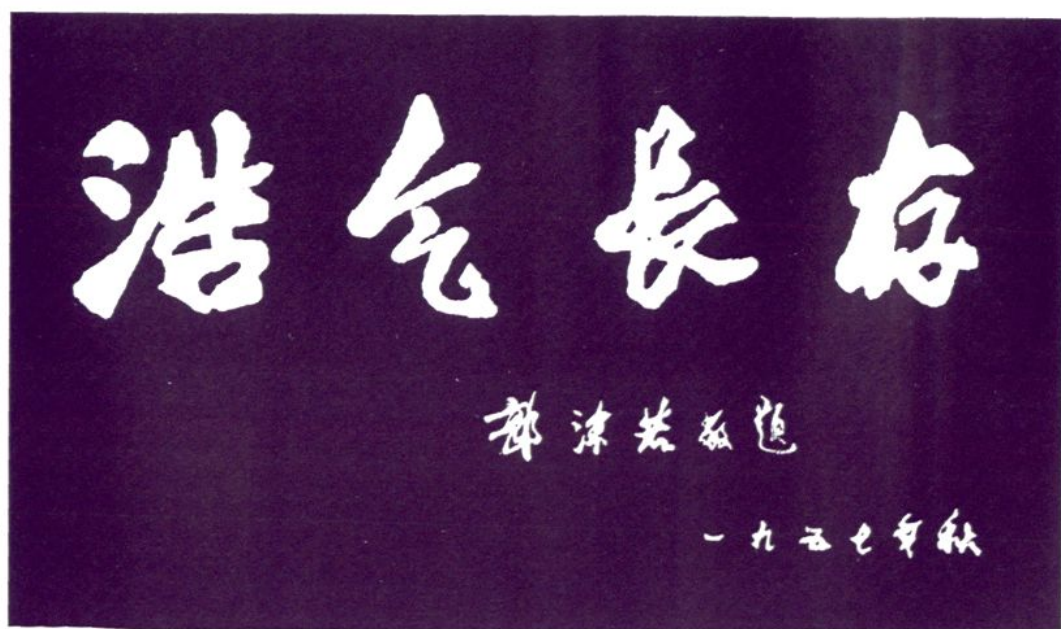 浩气長存
郭沫若敬题
一九五七年秋